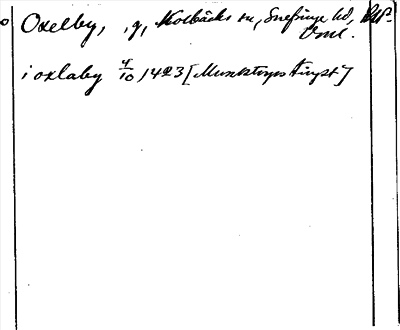 Oxelby, , g, Kolbäcks sn, Snefringe hd,
Vml.
i oxlaby 4/10 1423 [Munktorps tingst]